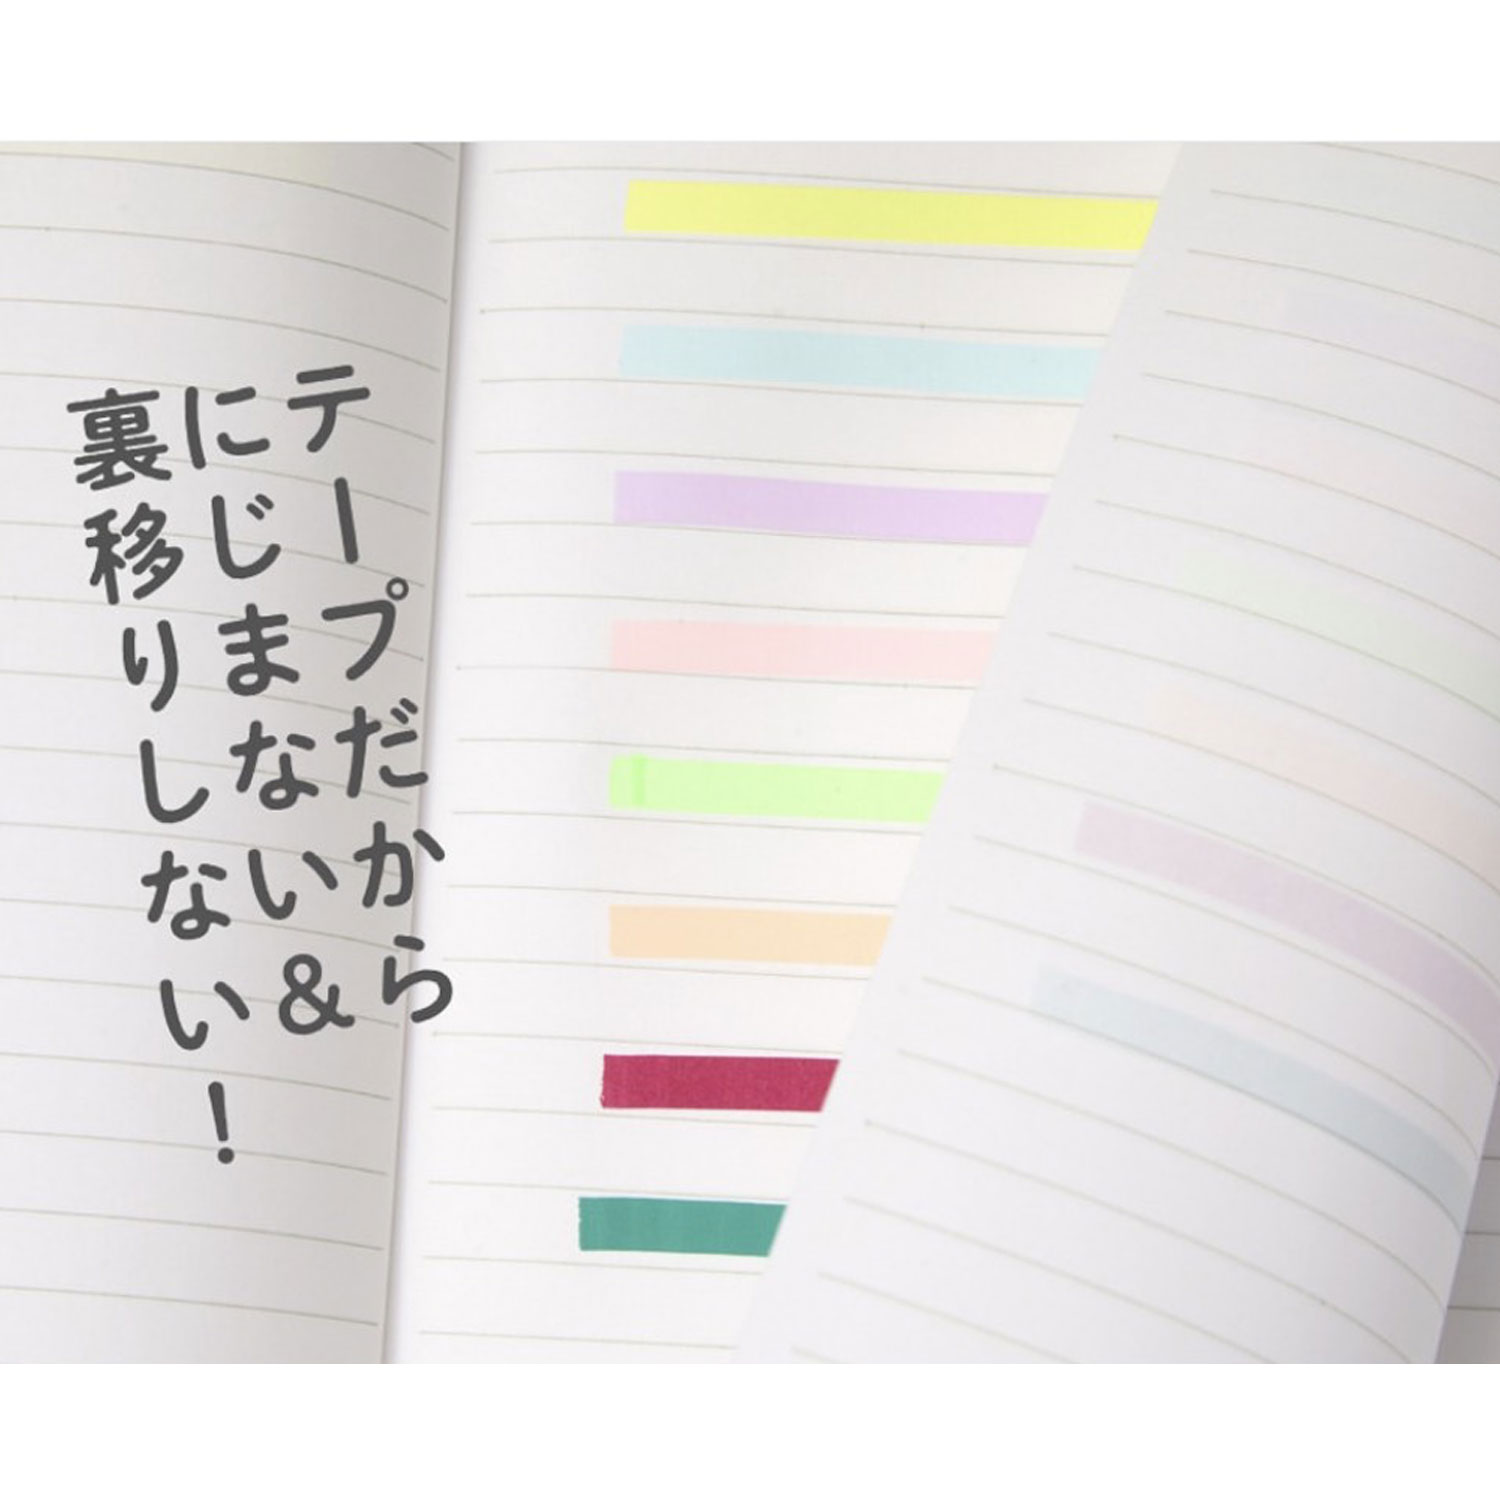 テープだから
にじまない&
裏移りしない!